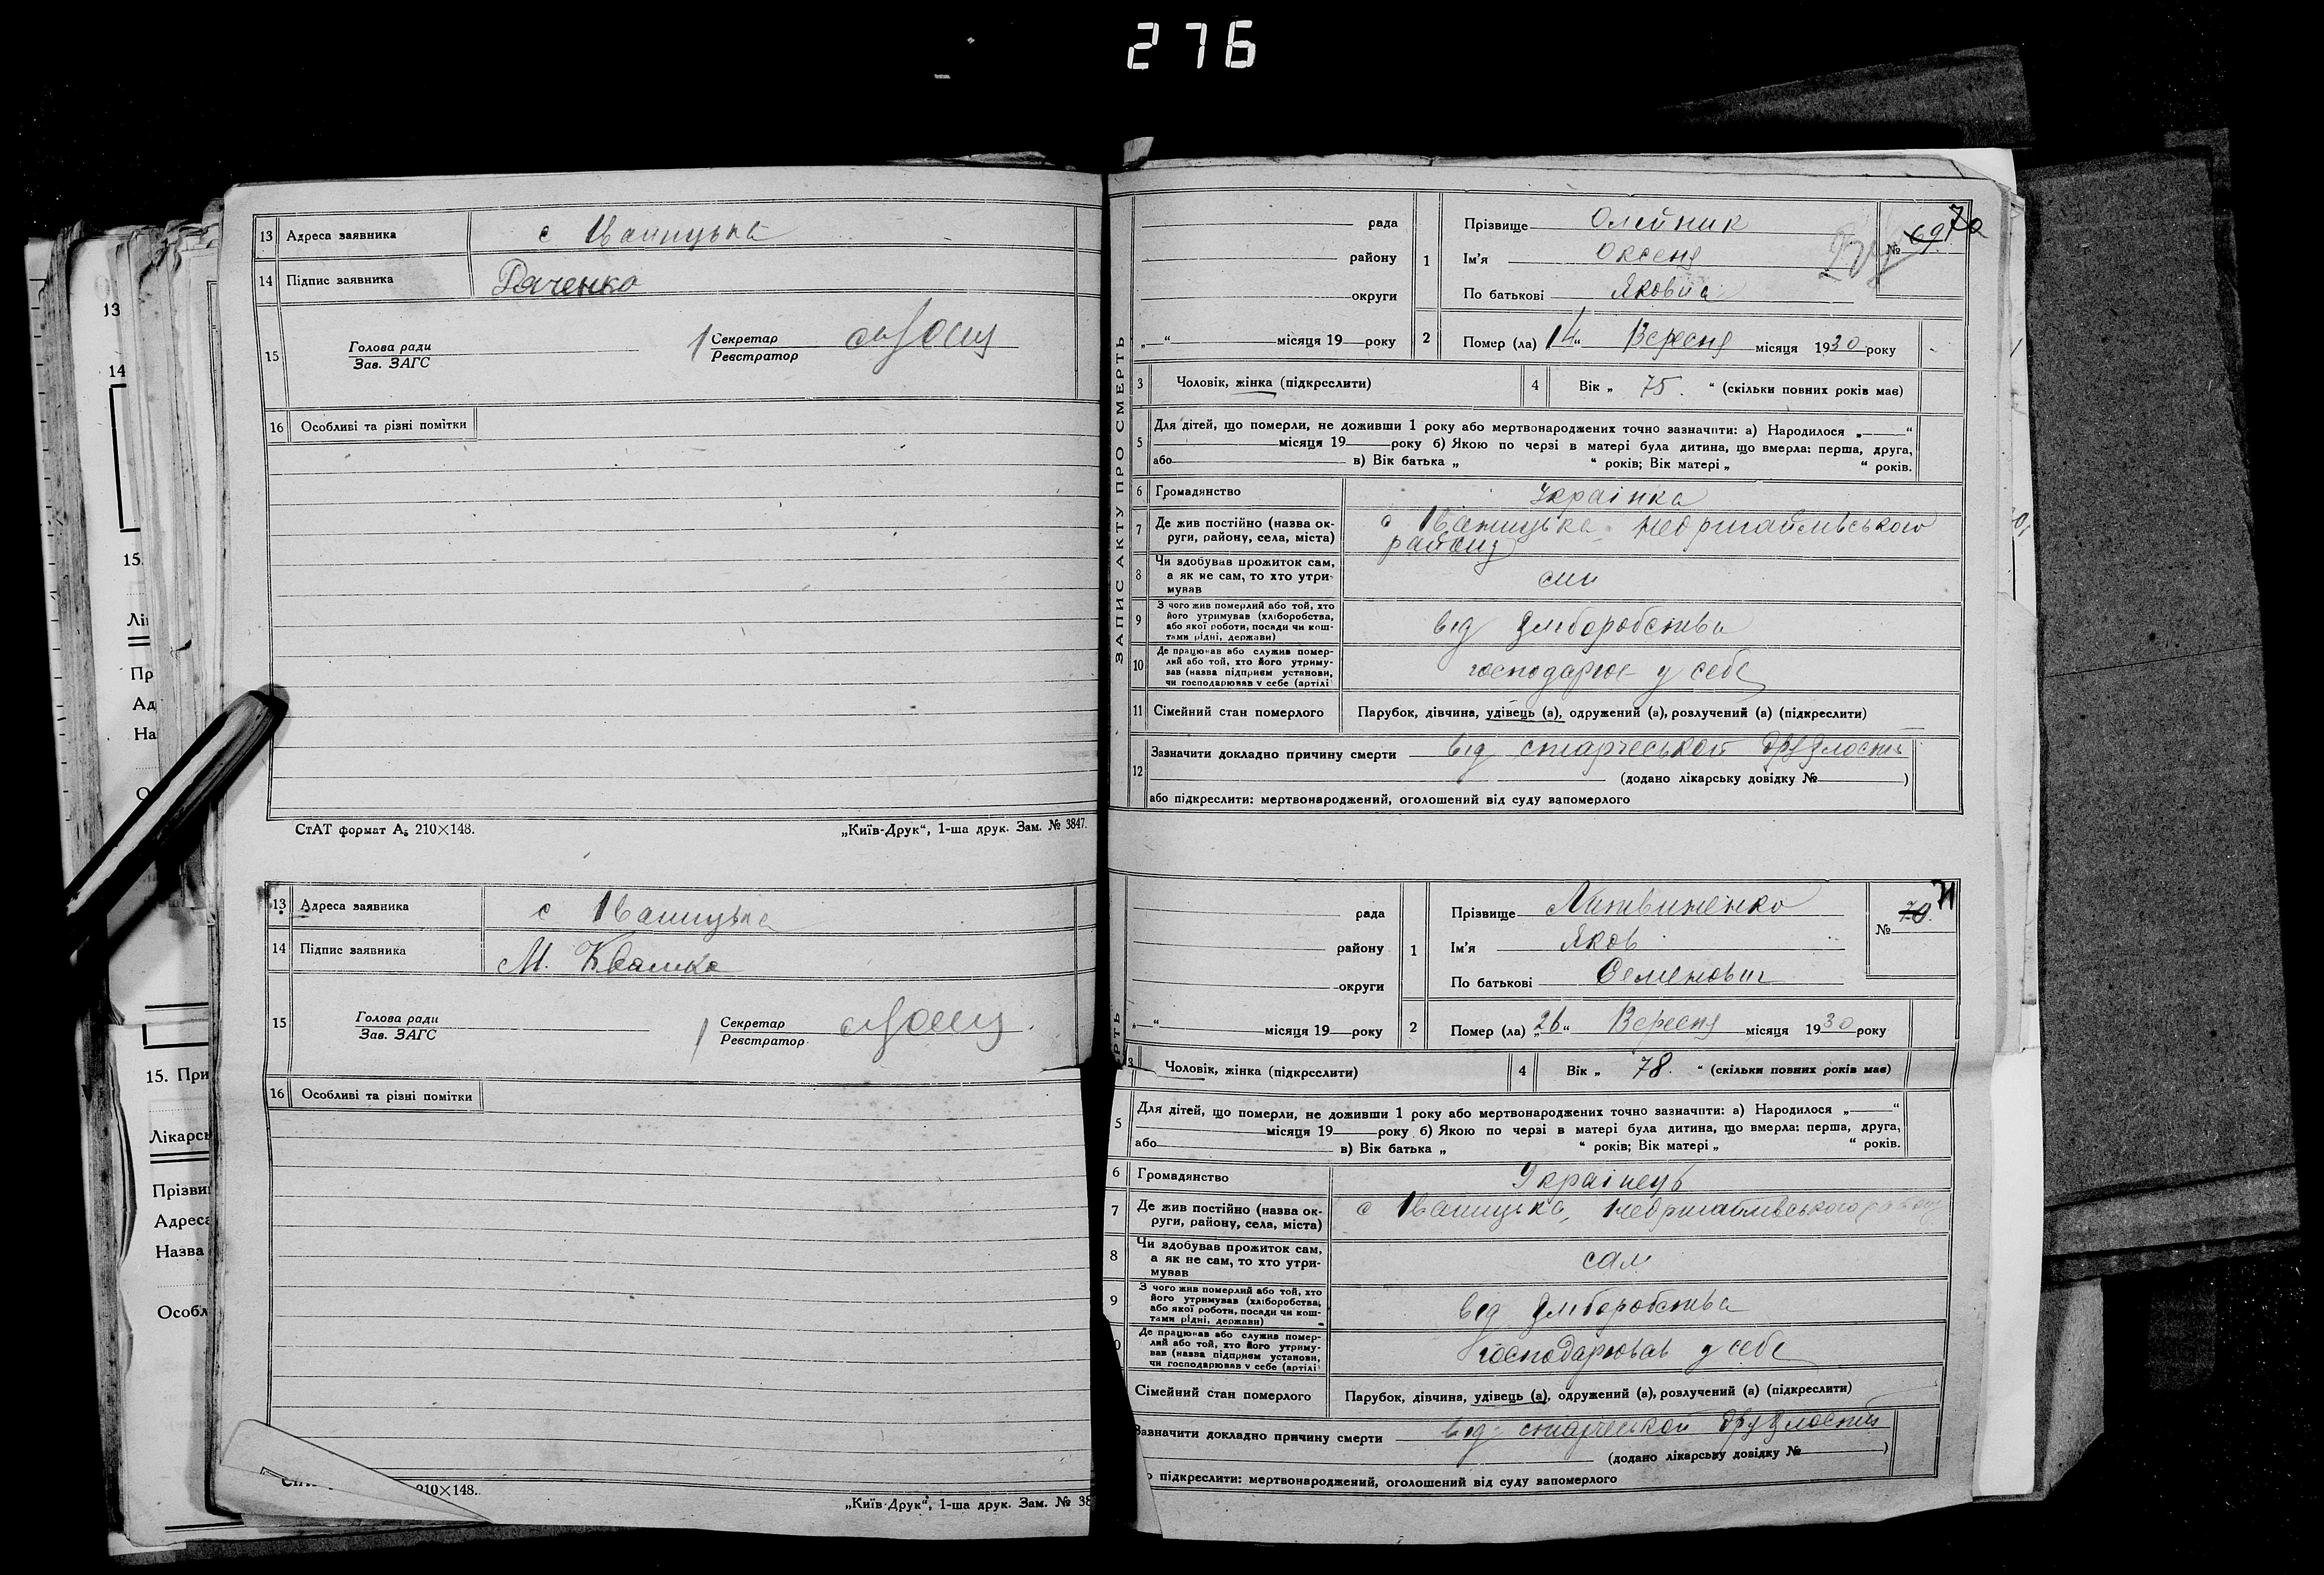 276
13 Адреса заявника с Іваницька
14 Підпис заявника Даченко
15 Голова ради
Зав. ЗАГС
Секретар
Реєстратор
16 Особливі та різні помітки
СтАТ формат А5 210×148.
„Київ-Друк“, 1-ша друк. Зам. № 3847.
13 Адреса заявника с Іваницька
14 Підпис заявника М. Квашка
15 Голова ради
Зав. ЗАГС
Секретар
Реєстратор
16 Особливі та різні помітки
210×148.
„Київ-Друк“, 1-ша друк. Зам. № 38
ЗАПИС АКТУ ПРО СМЕРТЬ
рада
району
округи
„ “ місяця 19 року
1 Прізвище Олейник
Ім'я Оксеня
По батькові Яковна
№ 69 70
2 Помер (ла) 14 “ Вересня місяця 1930 року
3 Чоловік, жінка (підкреслити) 4 Вік „ 75. “ (скільки повних років має)
5 Для дітей, що померли, не доживши 1 року або мертвонароджених точно зазначити: а) Народилося „ “
місяця 19 року б) Якою по черзі в матері була дитина, що вмерла: перша, друга,
або в) Вік батька „ “ років; Вік матері „ “ років.
6 Громадянство Українка
7 Де жив постійно (назва ок-
руги, району, села, міста)
с Іваницька Недригайлівського
району
8 Чи здобував прожиток сам,
а як не сам, то хто утри-
мував
син
9 З чого жив померлий або той, хто
його утримував (хліборобства,
або якої роботи, посади чи кош-
тами рідні, держави)
від хліборобства
10 Де працював або служив помер-
лий або той, хто його утриму-
вав (назва підприєм установи,
чи господарював у себе (артілі
господарює у себе
11 Сімейний стан померлого Парубок, дівчина, удівець (а), одружений (а), розлучений (а) (підкреслити)
12 Зазначити докладно причину смерти від старческой дряхлости
(додано лікарську довідку № )
або підкреслити: мертвонароджений, оголошений від суду запомерлого
рада
району
округи
„ “ місяця 19 року
1 Прізвище Литвиненко
Ім'я Яков
По батькові Семенович
№ 70. 71
2 Помер (ла) „26“ Вересня місяця 1930 року
3 Чоловік, жінка (підкреслити) 4 Вік „ 78. “ (скільки повних років має)
5 Для дітей, що померли, не доживши 1 року або мертвонароджених точно зазначити: а) Народилося „ “
місяця 19 року б) Якою по черзі в матері була дитина, що вмерла: перша, друга,
або в) Вік батька „ “ років; Вік матері „ “ років.
6 Громадянство Українець
7 Де жив постійно (назва ок-
руги, району, села, міста)
с Іваницька, Недригайлівського району
8 Чи здобував прожиток сам,
а як не сам, то хто утри-
мував
сам
9 З чого жив померлий або той, хто
його утримував (хліборобства,
або якої роботи, посади чи кош-
тами рідні, держави)
від хліборобства
Де працював або служив помер-
лий або той, хто його утриму-
вав (назва підприєм установи,
чи господарював у себе (артілі
господарював у себе
Сімейний стан померлого Парубок, дівчина, удівець (а), одружений (а), розлучений (а) (підкреслити)
Зазначити докладно причину смерти від старческой дряхлости
(додано лікарську довідку № )
підкреслити: мертвонароджений, оголошений від суду запомерлого